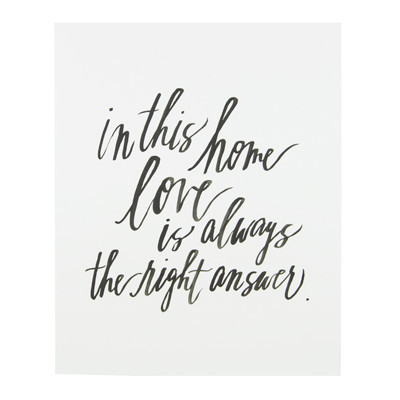 in this home
love
is always
the right answer.